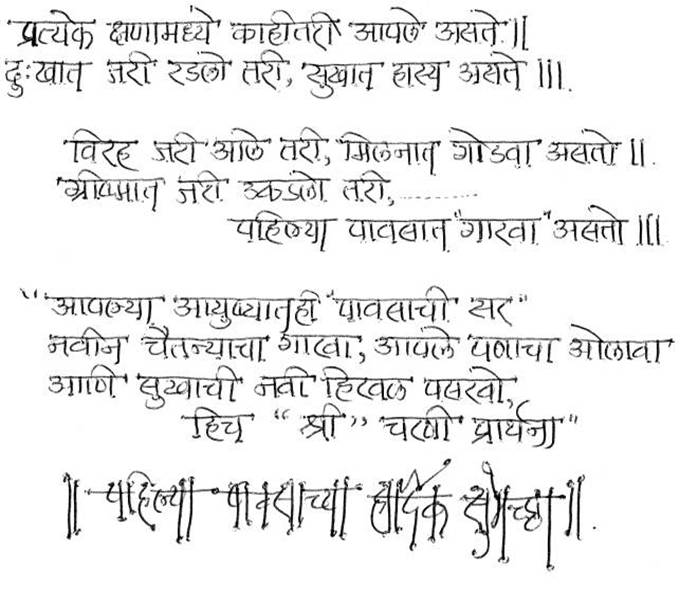 प्रत्येक क्षणामध्ये काहीतरी आपले असते ||
दुःखात जरी रडलो तरी, सुखात हास्य असते |||.
विरह जरी आले तरी, मिलनात गोडवा असतो ||.
ग्रीष्मात जरी उकडलो तरी,..........
पहिल्या पावसात "गारवा" असतो |||
"आपल्या आयुष्यातही "पावसाची सर"
नवीन चैतन्याचा गारवा, आपले पणाचा ओलावा
आणि सुखाची नवी हिरवळ पसरवो,
हिच "श्री" चरणी प्रार्थना"
|| पहिल्या पावसाच्या हार्दिक शुभेच्छा ||.